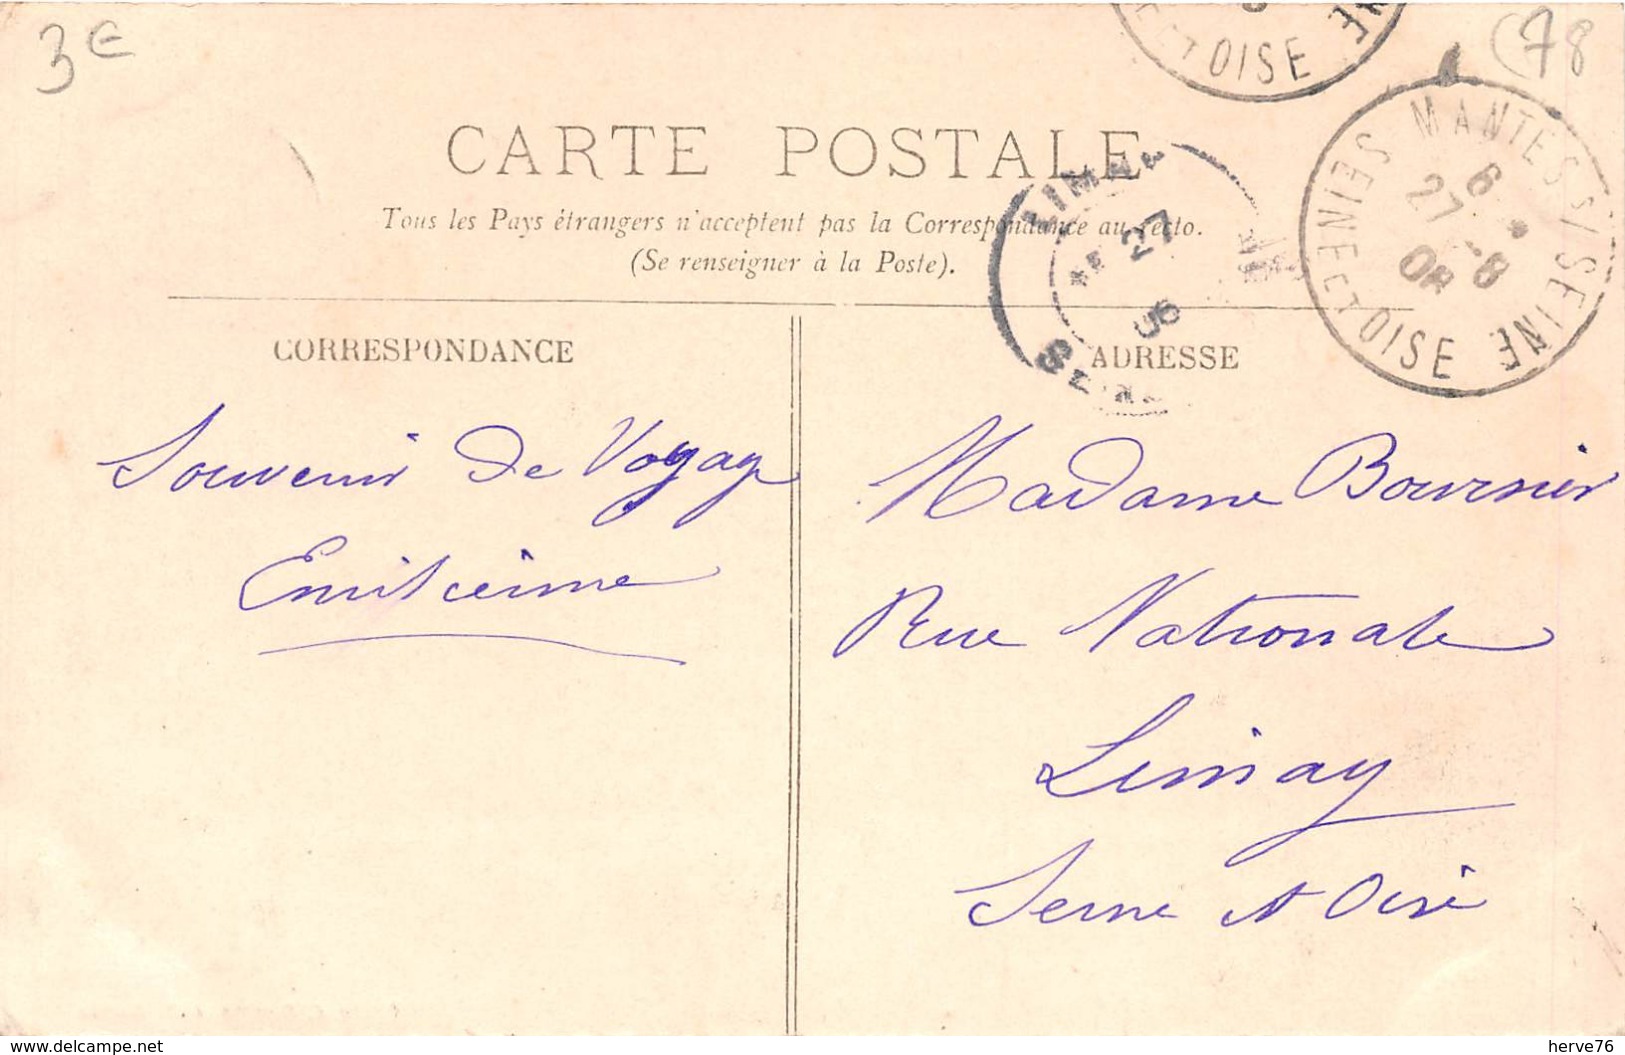 3€
(78
CARTE POSTALE
Tous les Pays étrangers n'acceptent pas la Correspondance au recto.
(Se renseigner à la Poste).
ET OISE
MANTES S/ SEINE
6
27 - 8
08
SEINE ET OISE
LIMAY
27
CORRESPONDANCE
ADRESSE
Souvenir de Voyage
Madame Boursier
Rue Nationale
Limay
Seine et Oise
www.delcampe.net
herve76